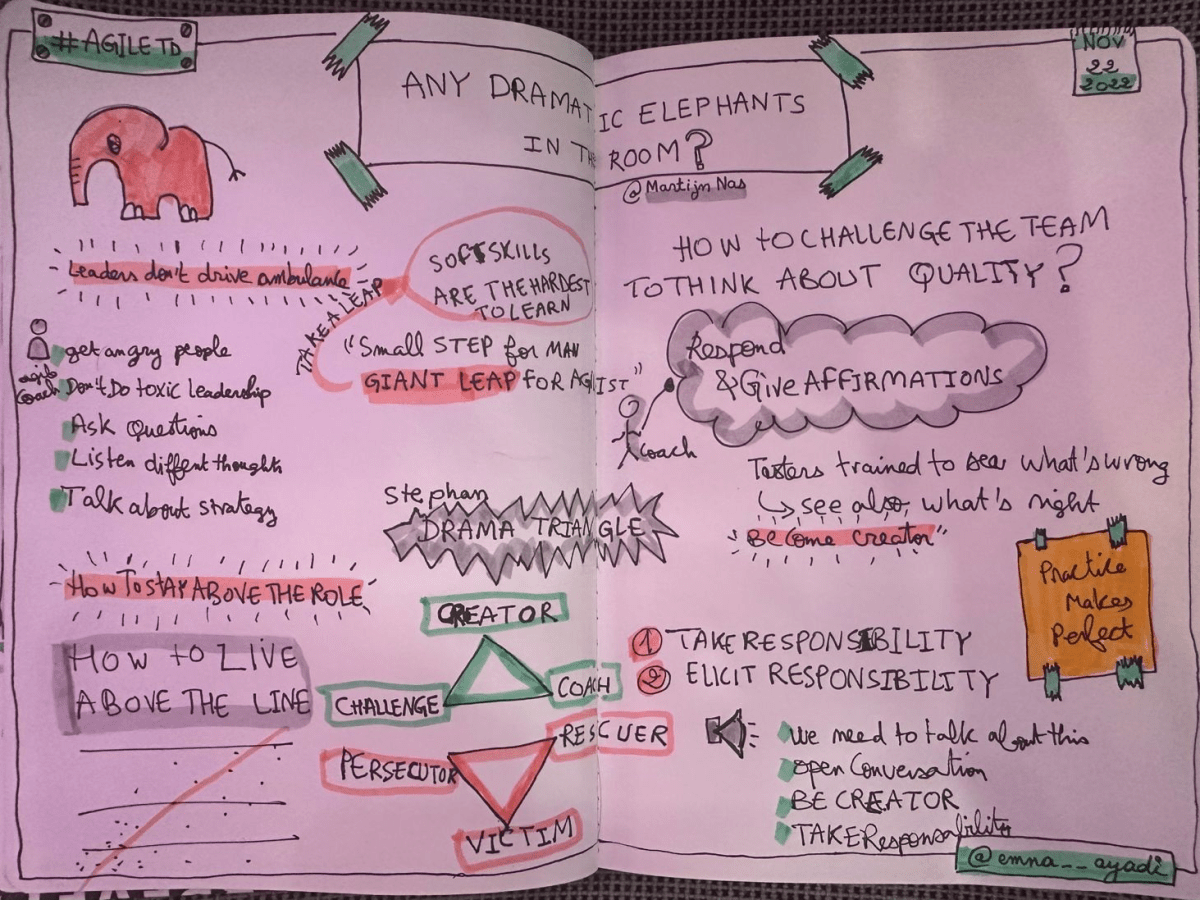 #AGILETD
NOV
22
2022
ANY DRAMATIC ELEPHANTS
IN THE ROOM?
@Martijn Nas
Leaders don't drive ambulance
agile
coach
get angry people
Don't Do toxic leadership
Ask Questions
Listen diffent thoughts
Talk about strategy
TAKE A LEAP
SOFTSKILLS
ARE THE HARDEST
TO LEARN
"Small STEP for MAN
GIANT LEAP FOR AGILIST"
HOW TO STAY ABOVE THE ROLE
HOW TO LIVE
ABOVE THE LINE
Stephan
DRAMA TRIANGLE
CREATOR
CHALLENGE
COACH
RESCUER
PERSECUTOR
VICTIM
HOW TO CHALLENGE THE TEAM
TO THINK ABOUT QUALITY?
Respond
& Give AFFIRMATIONS
Coach
Testers trained to see what's wrong
see also, what's right
"Become creator"
Practice
Makes
Perfect
1 TAKE RESPONSIBILITY
2 ELICIT RESPONSIBILITY
We need to talk about this
open Conversation
BE CREATOR
TAKE Responsability
@emna__ayadi